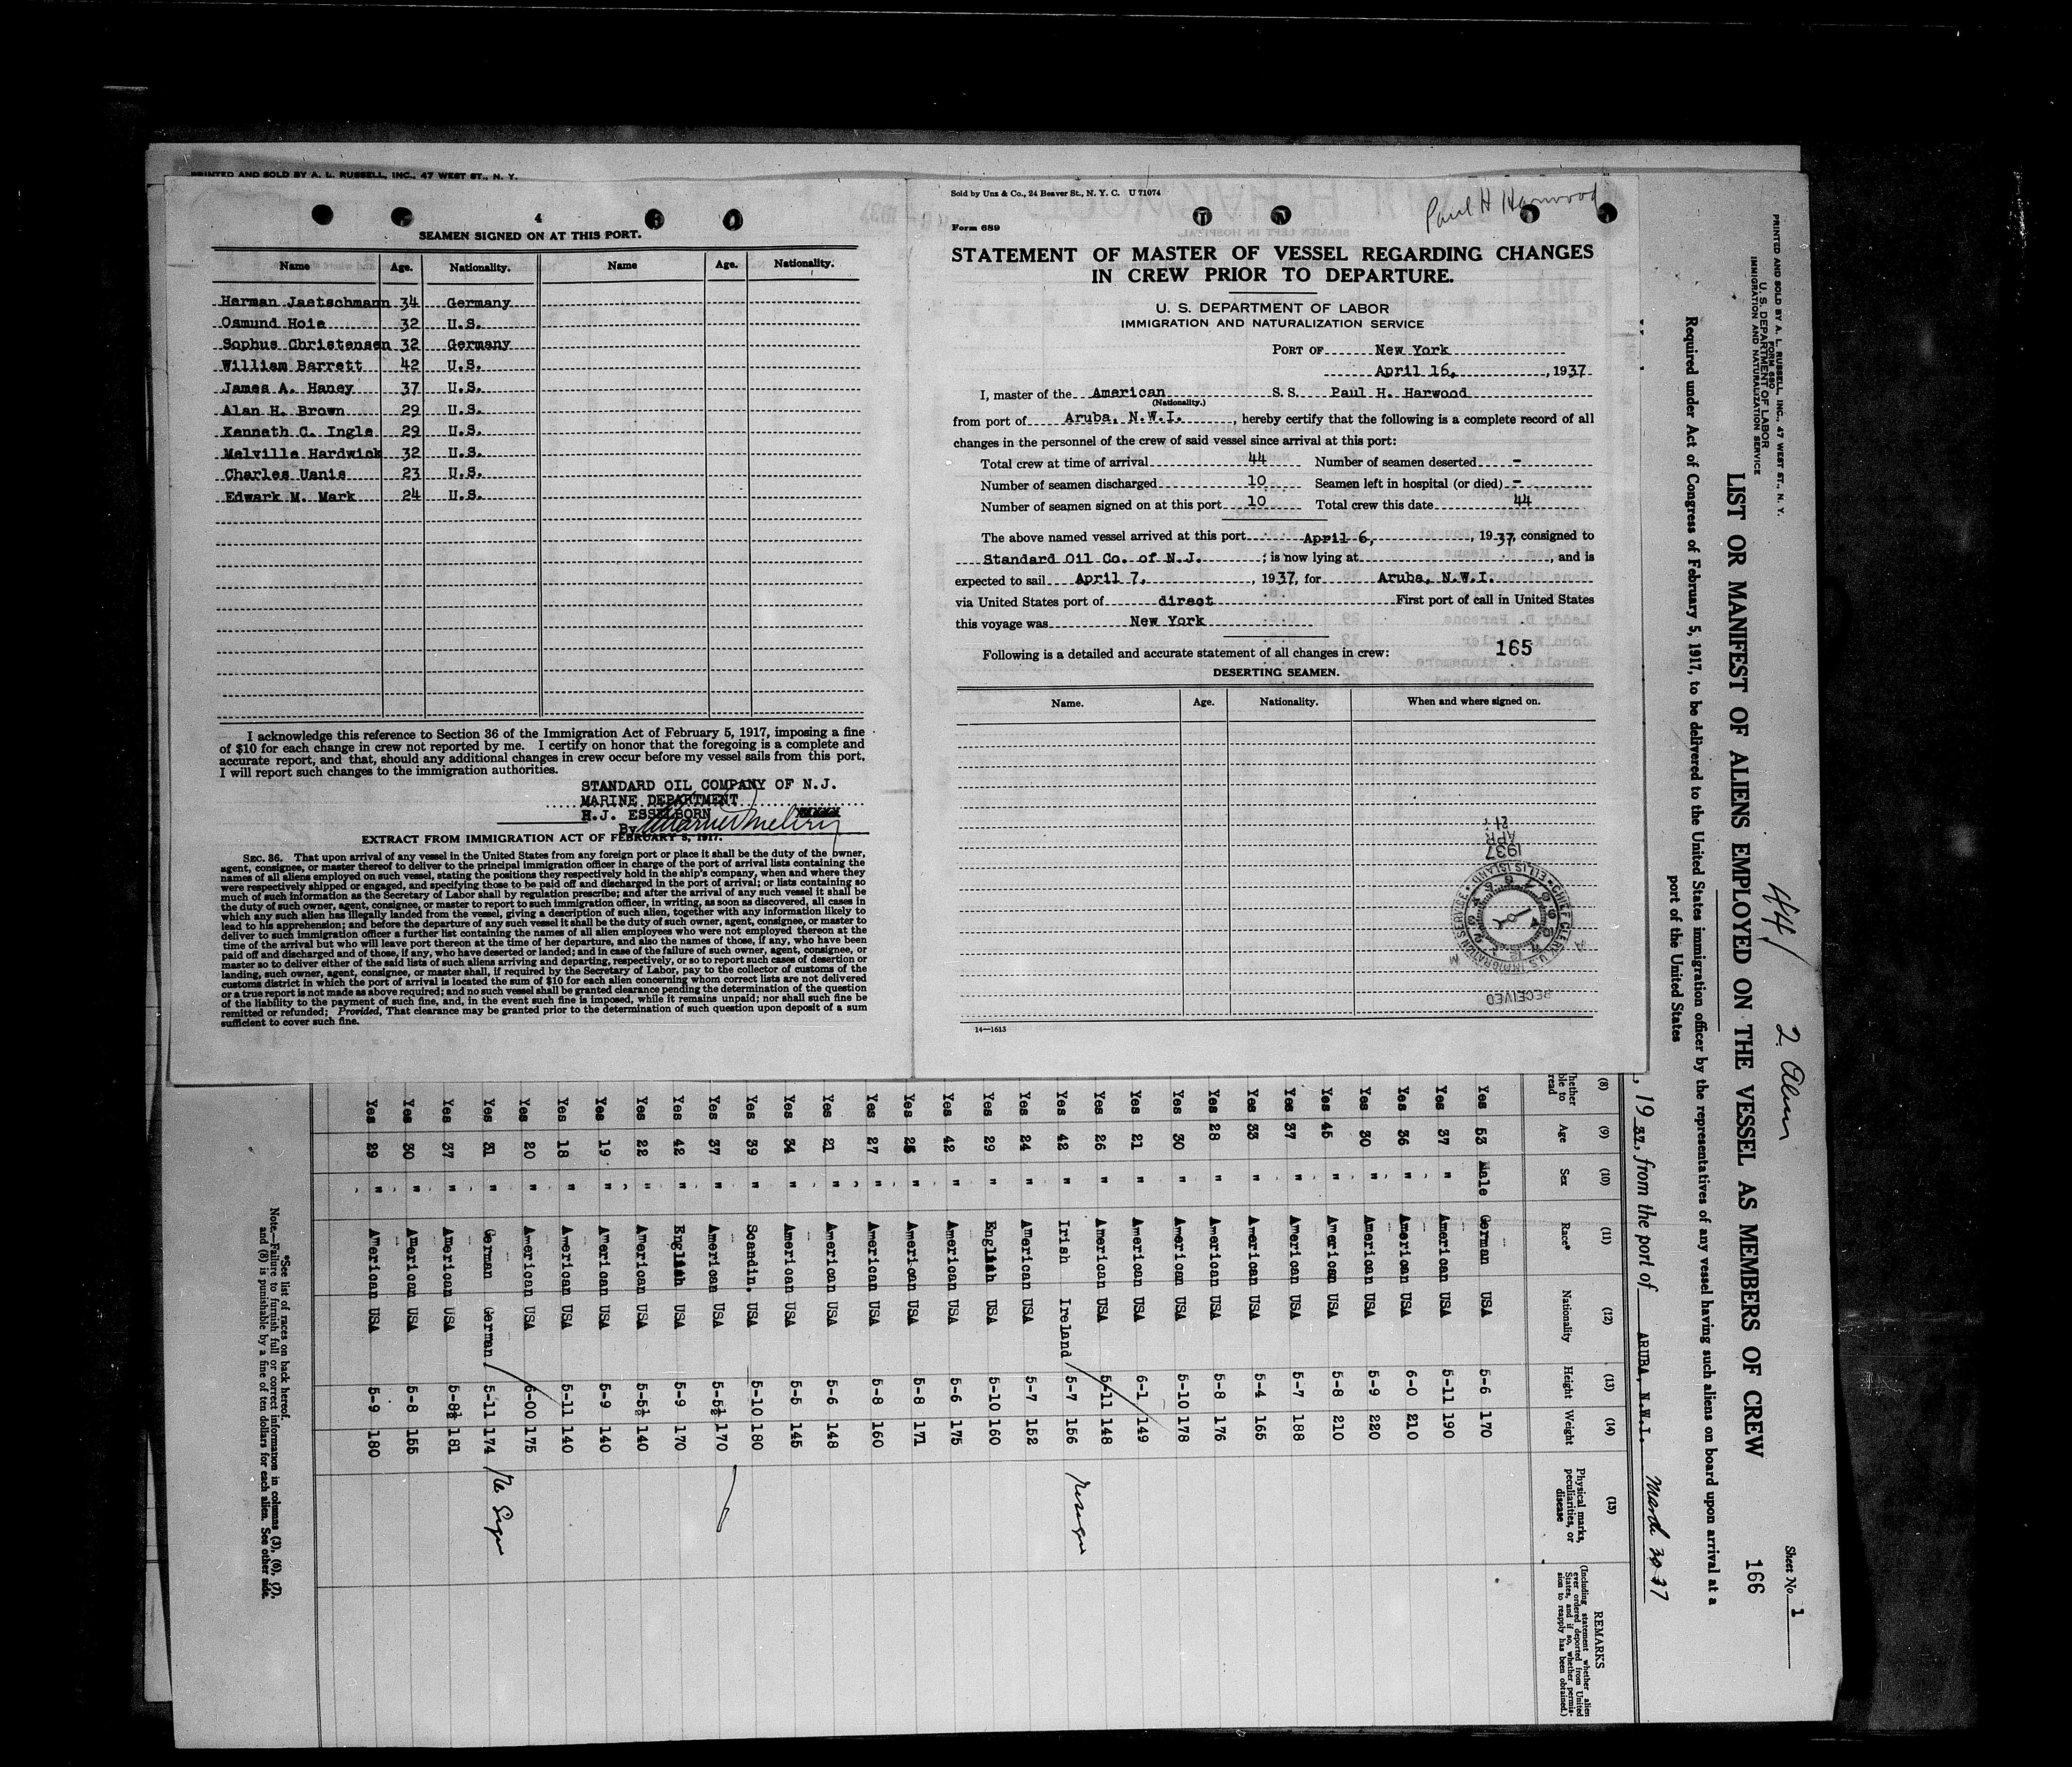 PRINTED AND SOLD BY A. L. RUSSELL, INC., 47 WEST ST., N. Y.
4
SEAMEN SIGNED ON AT THIS PORT.
Name Age. Nationality. Name Age. Nationality.
Herman Jaetschmann 34 Germany
Osmund Hoie 32 U.S.
Sophus Christensen 32 Germany
William Barrett 42 U.S.
James A. Haney 37 U.S.
Alan H. Brown 29 U.S.
Kenneth C. Ingle 29 U.S.
Melville Hardwick 32 U.S.
Charles Uanis 23 U.S.
Edwark M. Mark 24 U.S.
I acknowledge this reference to Section 36 of the Immigration Act of February 5, 1917, imposing a fine
of $10 for each change in crew not reported by me. I certify on honor that the foregoing is a complete and
accurate report, and that, should any additional changes in crew occur before my vessel sails from this port,
I will report such changes to the immigration authorities.
STANDARD OIL COMPANY OF N.J.
MARINE DEPARTMENT
R.J. ESSELBORN
By
EXTRACT FROM IMMIGRATION ACT OF FEBRUARY 5, 1917.
SEC. 36. That upon arrival of any vessel in the United States from any foreign port or place it shall be the duty of the owner,
agent, consignee, or master thereof to deliver to the principal immigration officer in charge of the port of arrival lists containing the
names of all aliens employed on such vessel, stating the positions they respectively hold in the ship's company, when and where they
were respectively shipped or engaged, and specifying those to be paid off and discharged in the port of arrival; or lists containing so
much of such information as the Secretary of Labor shall by regulation prescribe; and after the arrival of any such vessel it shall be
the duty of such owner, agent, consignee, or master to report to such immigration officer, in writing, as soon as discovered, all cases in
which any such alien has illegally landed from the vessel, giving a description of such alien, together with any information likely to
lead to his apprehension; and before the departure of any such vessel it shall be the duty of such owner, agent, consignee, or master to
deliver to such immigration officer a further list containing the names of all alien employees who were not employed thereon at the
time of the arrival but who will leave port thereon at the time of her departure, and also the names of those, if any, who have been
paid off and discharged and of those, if any, who have deserted or landed; and in case of the failure of such owner, agent, consignee, or
master so to deliver either of the said lists of such aliens arriving and departing, respectively, or so to report such cases of desertion or
landing, such owner, agent, consignee, or master shall, if required by the Secretary of Labor, pay to the collector of customs of the
customs district in which the port of arrival is located the sum of $10 for each alien concerning whom correct lists are not delivered
or a true report is not made as above required; and no such vessel shall be granted clearance pending the determination of the question
of the liability to the payment of such fine, and, in the event such fine is imposed, while it remains unpaid; nor shall such fine be
remitted or refunded; Provided, That clearance may be granted prior to the determination of such question upon deposit of a sum
sufficient to cover such fine.
Sold by Unz & Co., 24 Beaver St., N. Y. C. U 71074
Paul H Harwood
Form 689
STATEMENT OF MASTER OF VESSEL REGARDING CHANGES
IN CREW PRIOR TO DEPARTURE.
U. S. DEPARTMENT OF LABOR
IMMIGRATION AND NATURALIZATION SERVICE
PORT OF New York
April 16, , 1937
I, master of the American S. S. Paul H. Harwood
(Nationality.)
from port of Aruba, N.W.I. , hereby certify that the following is a complete record of all
changes in the personnel of the crew of said vessel since arrival at this port:
Total crew at time of arrival 44 Number of seamen deserted -
Number of seamen discharged 10 Seamen left in hospital (or died) -
Number of seamen signed on at this port 10 Total crew this date 44
The above named vessel arrived at this port April 6, , 1937, consigned to
Standard Oil Co. of N.J. ; is now lying at , and is
expected to sail April 7, , 1937, for Aruba, N.W.I.
via United States port of direct First port of call in United States
this voyage was New York
Following is a detailed and accurate statement of all changes in crew: 165
DESERTING SEAMEN.
Name. Age. Nationality. When and where signed on.
RECEIVED
CHIEF CLERK U.S. IMMIGRATION SERVICE ELLIS ISLAND
1937 APR
14—1613
PRINTED AND SOLD BY A. L. RUSSELL, INC., 47 WEST ST., N. Y.
FORM 680
U. S. DEPARTMENT OF LABOR
IMMIGRATION AND NATURALIZATION SERVICE
44/ 2 Alien
Sheet No. 1
166
LIST OR MANIFEST OF ALIENS EMPLOYED ON THE VESSEL AS MEMBERS OF CREW
Required under Act of Congress of February 5, 1917, to be delivered to the United States immigration officer by the representatives of any vessel having such aliens on board upon arrival at a
port of the United States
, 1937, from the port of ARUBA, N.W.I. March 30 37
(8) (9) (10) (11) (12) (13) (14) (15)
Age Sex Race* Nationality Height Weight Physical marks, peculiarities, or disease
REMARKS
(Including statement whether alien ever ordered deported from United States, and if so, whether permission to reapply has been obtained.)
Yes 53 Male German USA 5-6 170
Yes 37 " American USA 5-11 190
Yes 36 " American USA 6-0 210
Yes 30 " American USA 5-9 220
Yes 45 " American USA 5-8 210
Yes 37 " American USA 5-7 188
Yes 33 " American USA 5-4 165
Yes 28 " American USA 5-8 176
Yes 30 " American USA 5-10 178
Yes 21 " American USA 6-1 149
Yes 26 " American USA 5-11 148
Yes 42 " Irish Ireland 5-7 156
Yes 24 " American USA 5-7 152
Yes 29 " English USA 5-10 160
Yes 42 " American USA 5-6 175
Yes 25 " American USA 5-8 171
Yes 27 " American USA 5-8 160
Yes 21 " American USA 5-6 148
Yes 34 " American USA 5-5 145
Yes 39 " Scandin. USA 5-10 180
Yes 37 " American USA 5-5½ 170
Yes 42 " English USA 5-9 170
Yes 22 " American USA 5-5½ 140
Yes 19 " American USA 5-9 140
Yes 18 " American USA 5-11 140
Yes 20 " American USA 6-00 175
Yes 31 " German German 5-11 174
Yes 37 " American USA 5-8½ 181
Yes 30 " American USA 5-8 155
Yes 29 " American USA 5-9 180
*See list of races on back hereof.
Note.—Failure to furnish full or correct information in columns (3), (6), (7),
and (8) is punishable by a fine of ten dollars for each alien. See other side.